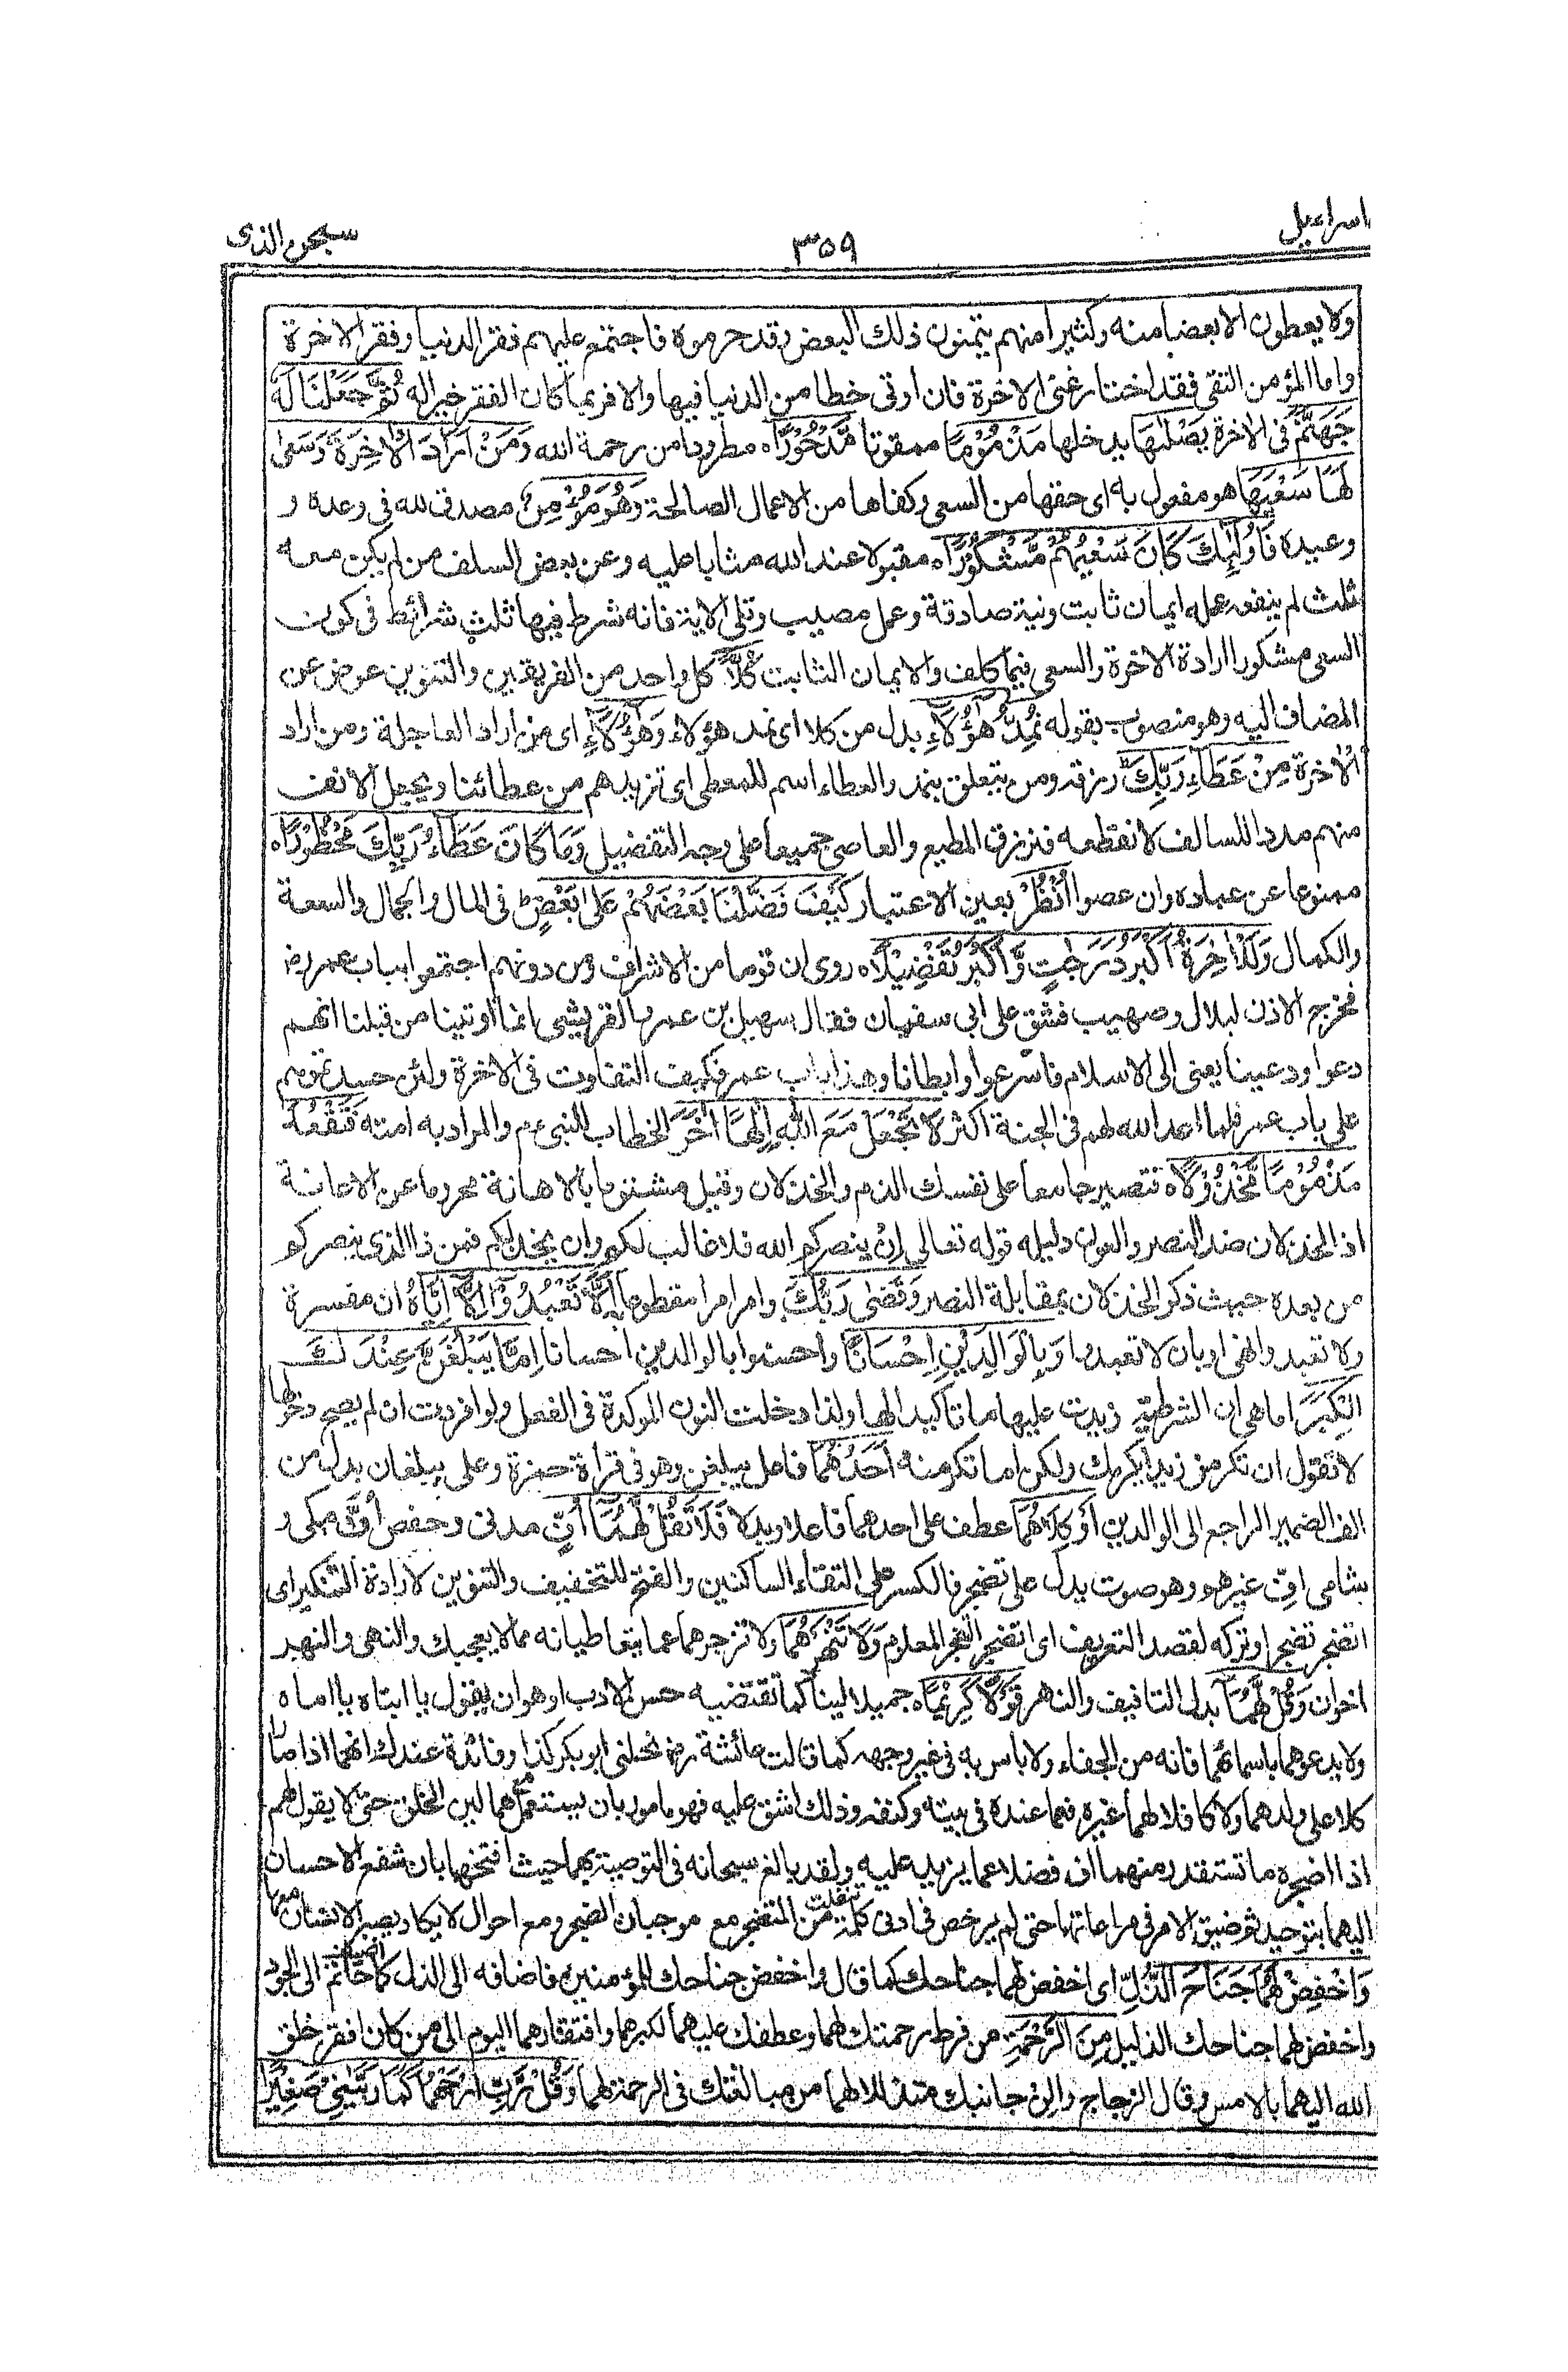 اسراعيل
٣٥٩
سبحن الذى
ولا يعطون الا بعضا منه وكثيرا منهم يتمنون ذلك البعض وقد حرموه فاجتمع عليهم فقر الدنيا وفقر الاخرة
واما المؤمن التقى فقد اختار غنى الاخرة فان اوتى حظا من الدنيا فيها والا فربما كان الفقر خيرا له ثُمَّ جَعَلْنَا لَهُ
جَهَنَّمَ فى الاخرة يَصْلٰىهَا يدخلها مَذْمُوْمًا ممقوتا مَّدْحُوْرًا ه مطرودا من رحمة الله وَمَنْ اَرَادَ الْاٰخِرَةَ وَسَعٰى
لَهَا سَعْيَهَا هو مفعول به اى حقها من السعى وكفاها من الاعمال الصالحة وَهُوَ مُؤْمِنٌ مصدق لله فى وعده و
وعيده فَاُولٰٓئِكَ كَانَ سَعْيُهُمْ مَّشْكُوْرًا ه مقبولا عند الله مثابا عليه وعن بعض السلف من لم يكن معه
ثلث لم ينفعه عمله ايمان ثابت ونية صادقة وعمل مصيب وتلى الاية فانه شرط فيها ثلث شرائط فى كون
السعى مشكورا ارادة الاخرة والسعى فيما كلف والايمان الثابت كُلًّا كل واحد من الفريقين والتنوين عوض عن
المضاف اليه وهو منصوب بقوله نُمِدُّ هٰٓؤُلَآءِ بدل من كلا اى نمد هؤلاء وَهٰٓؤُلَآءِ اى من اراد العاجلة ومن اراد
الاخرة مِنْ عَطَآءِ رَبِّكَ ط رزقه ومن يتعلق بنمد والعطاء اسم للمعطى اى نزيدهم من عطائنا ونجعل الانف
منهم مددا للسالف لا نقطعه فنرزق المطيع والعاصى جميعا على وجه التفضيل وَمَا كَانَ عَطَآءُ رَبِّكَ مَحْظُوْرًا ه
ممنوعا عن عباده وان عصوا اُنْظُرْ بعين الاعتبار كَيْفَ فَضَّلْنَا بَعْضَهُمْ عَلٰى بَعْضٍ ط فى المال والجمال والسعة
والكمال وَلَلْاٰخِرَةُ اَكْبَرُ دَرَجٰتٍ وَّاَكْبَرُ تَفْضِيْلًا ه روى ان قوما من الاشراف ومن دونهم اجتمعوا بباب عمر رض
فخرج الاذن لبلال وصهيب فشق على ابى سفيان فقال سهيل بن عمرو القريشى انما اوتينا من قبلنا انهم
دعوا ودعينا يعنى الى الاسلام فاسرعوا وابطانا وهذا باب عمر فكيف التفاوت فى الاخرة ولئن حسدتموهم
على باب عمر فلما اعد الله لهم فى الجنة اكثر لَا تَجْعَلْ مَعَ اللّٰهِ اِلٰهًا اٰخَرَ الخطاب للنبى عم والمراد به امته فَتَقْعُدَ
مَذْمُوْمًا مَّخْذُوْلًا ه فتصير جامعا على نفسك الذم والخذلان وقيل مشتوما بالاهانة محروما عن الاعانة
اذ الخذلان ضد النصر والعون دليله قوله تعالى ان ينصركم الله فلا غالب لكم وان يخذلكم فمن ذا الذى ينصركم
من بعده حيث ذكر الخذلان بمقابلة النصر وَقَضٰى رَبُّكَ وامر امرا مقطوعا به اَلَّا تَعْبُدُوْٓا اِلَّآ اِيَّاهُ ان مفسرة
ولا تعبدوا نهى او بان لا تعبدوا وَبِالْوَالِدَيْنِ اِحْسَانًا واحسنوا بالوالدين احسانا اِمَّا يَبْلُغَنَّ عِنْدَكَ
الْكِبَرَ اما هى ان الشرطية زيدت عليها ما تاكيدا لها ولذا دخلت النون المؤكدة فى الفعل ولو افردت ان لم يصح دخولها
لا تقول ان تكرمن زيدا يكرمك ولكن اما تكرمنه اَحَدُهُمَآ فاعل يبلغن وهو فى قراءة حمزة وعلى يبلغان بدل من
الف الضمير الراجع الى الوالدين اَوْ كِلٰهُمَا عطف على احدهما فاعلا وبدلا فَلَا تَقُلْ لَّهُمَآ اُفٍّ مدنى وحفص اُفَّ مكى و
شامى افِّ غيرهم وهو صوت يدل على تضجر فالكسر على التقاء الساكنين والفتح للتخفيف والتنوين لارادة التنكير اى
اتضجر تضجرا وتركه لقصد التعريف اى اتضجر التضجر المعلوم وَلَا تَنْهَرْهُمَا ولا تزجرهما عما يتعاطيانه مما لا يعجبك والنهى والنهر
اخوان وَقُلْ لَّهُمَا بدل التافيف والنهر قَوْلًا كَرِيْمًا ه جميلا لينا كما تقتضيه حسن الادب او هو ان يقول يا ابتاه يا اماه
ولا يدعوهما باسمائهما فانه من الجفاء ولا باس به فى غير وجهه كما قالت عائشة رض نحلنى ابو بكر كذا وفائدة عندك انهما اذا صارا
كلا على ولدهما ولا كافل لهما غيره فهما عنده فى بيته وكنفه وذلك اشق عليه فهو مامور بان يستعمل معهما لين الخلق حتى لا يقول لهما
اذا اضجره ما تستقذر منهما اف فضلا عما يزيد عليه ولقد بالغ سبحانه فى التوصية بهما حيث افتتحها بان شفع الاحسان
اليهما بتوحيده ثم ضيق الامر فى مراعاتهما حتى لم يرخص فى ادنى كلمة تنفلت من المتضجر مع موجبات الضجر ومع احوال لا يكاد يصبر الانسان معها
وَاخْفِضْ لَهُمَا جَنَاحَ الذُّلِّ اى اخفض لهما جناحك كما قال واخفض جناحك للمؤمنين فاضافه الى الذل كما اضيف حاتم الى الجود
واخفض لهما جناحك الذليل مِنَ الرَّحْمَةِ من فرط رحمتك لهما وعطفك عليهما لكبرهما وافتقارهما اليوم الى من كان افقر خلق
الله اليهما بالامس وقال الزجاج والن جانبك متذللا لهما من مبالغتك فى الرحمة لهما وَقُلْ رَّبِّ ارْحَمْهُمَا كَمَا رَبَّيٰنِىْ صَغِيْرًا